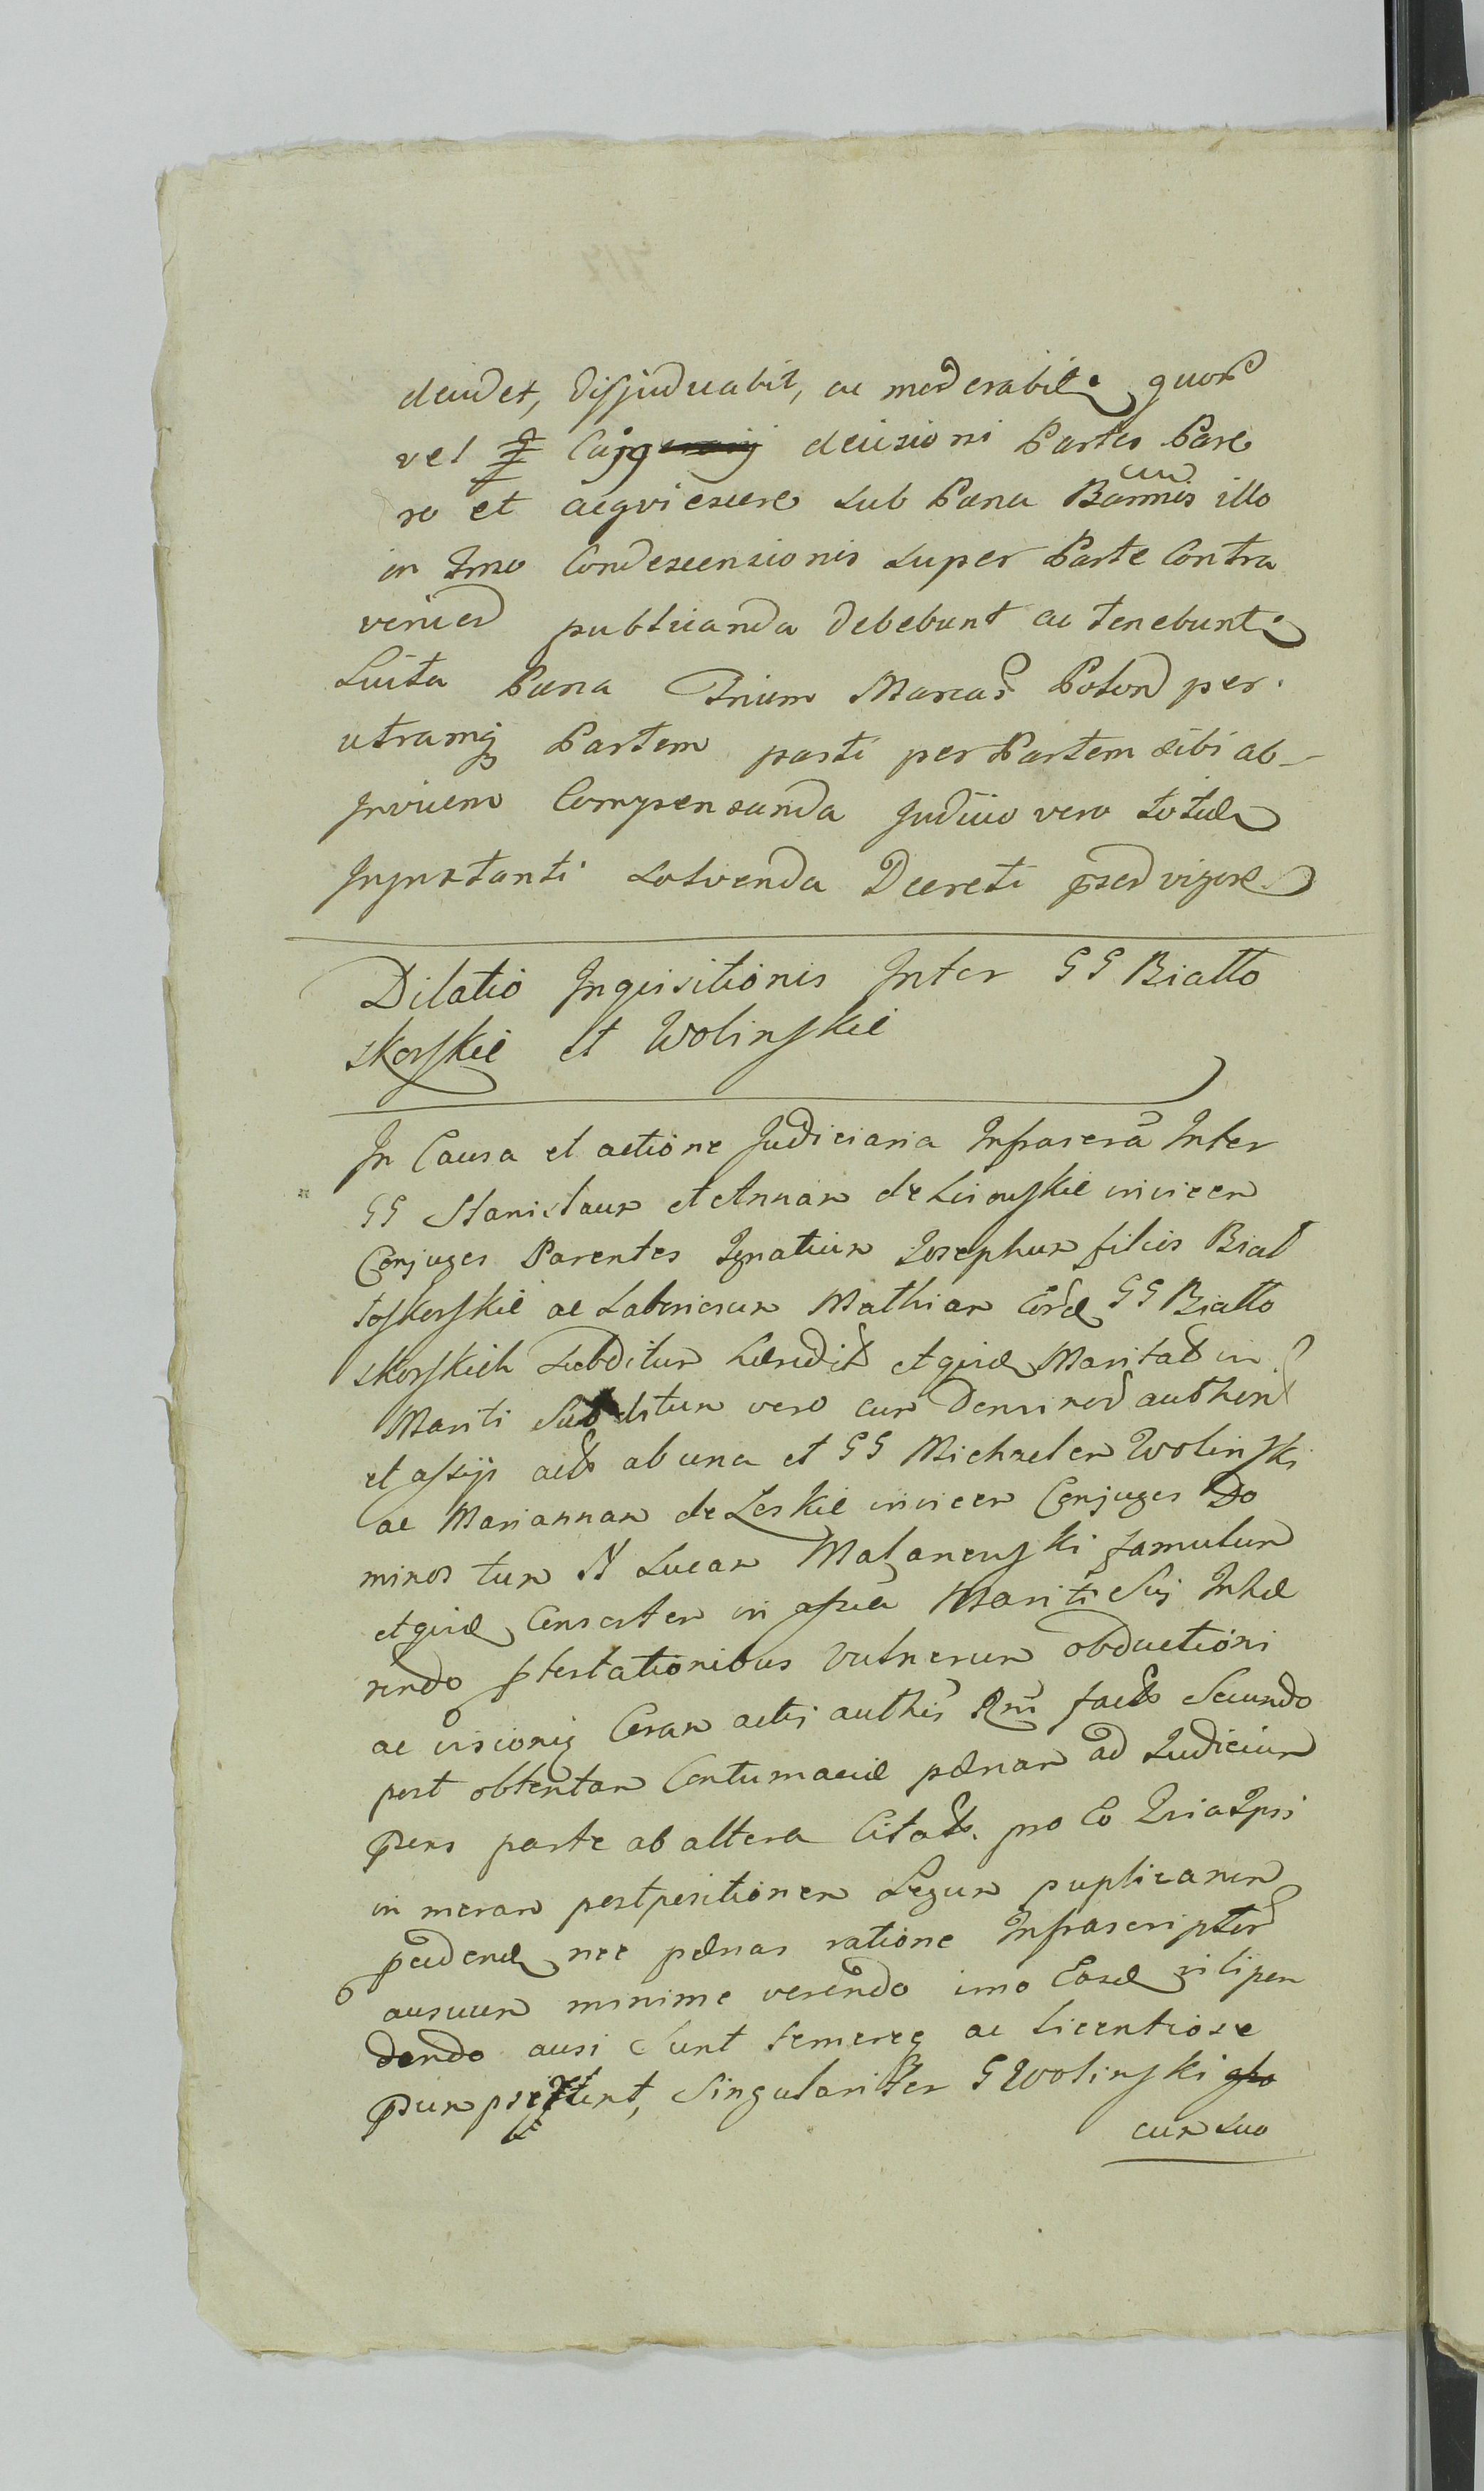 decidet, disjudicabit, ac moderabit quor
vel cujg decisioni Partes Pare
re et acqviescere sub Pana Bannis illo
in Trno Condescensionis super Parte Contra
venied publicanda debebunt ac tenebunt
Luita Pæna Trium Marcar Polon per
utramq Partem parti per Partem sibi ab
Invicem Compensanda Judicio vero totid
Inpnstanti solvenda Decreti pnsed vigore
Dilatio Inqvisitionis Inter GG Biatto
skorskie et Wolinskie
In Causa et actione Judiciaria Infrascra Inter
GG Stanislaum et Annam de invicem
Conjuges Parentes Ignatium Josephum filios Biał
łoskorskie ac Laboriosum Mathiam Eord GG Biatto
skorskich Subditum et qvid Maritat in
Mariti Subditum vero cum Dominor authen
et assijs act ab una et GG Michaelem Wolinski
ac Mariannam de Leskie invicem Conjuges Do
minos tum N Lucam famulum
et qvid Consortem in assia Mariti Sui Inhæ
rendo ptestationibus vulnerum obductioni
ac visioniq Coram actis authis Rni fact Secundo
post obtentam Contumaciæ pænam ad Judicium
pens parte ab altera Citat. pro Eo Qvia Ipsi
in meram postpositionem Legum puplicarum
pcudend nec pænas ratione Infrascriptor
ausuum minime verendo imo Easd vilipen
dendo ausi Sunt temereq ac licentiose
psumpserunt, Singulariter G Wolinski
cum suo